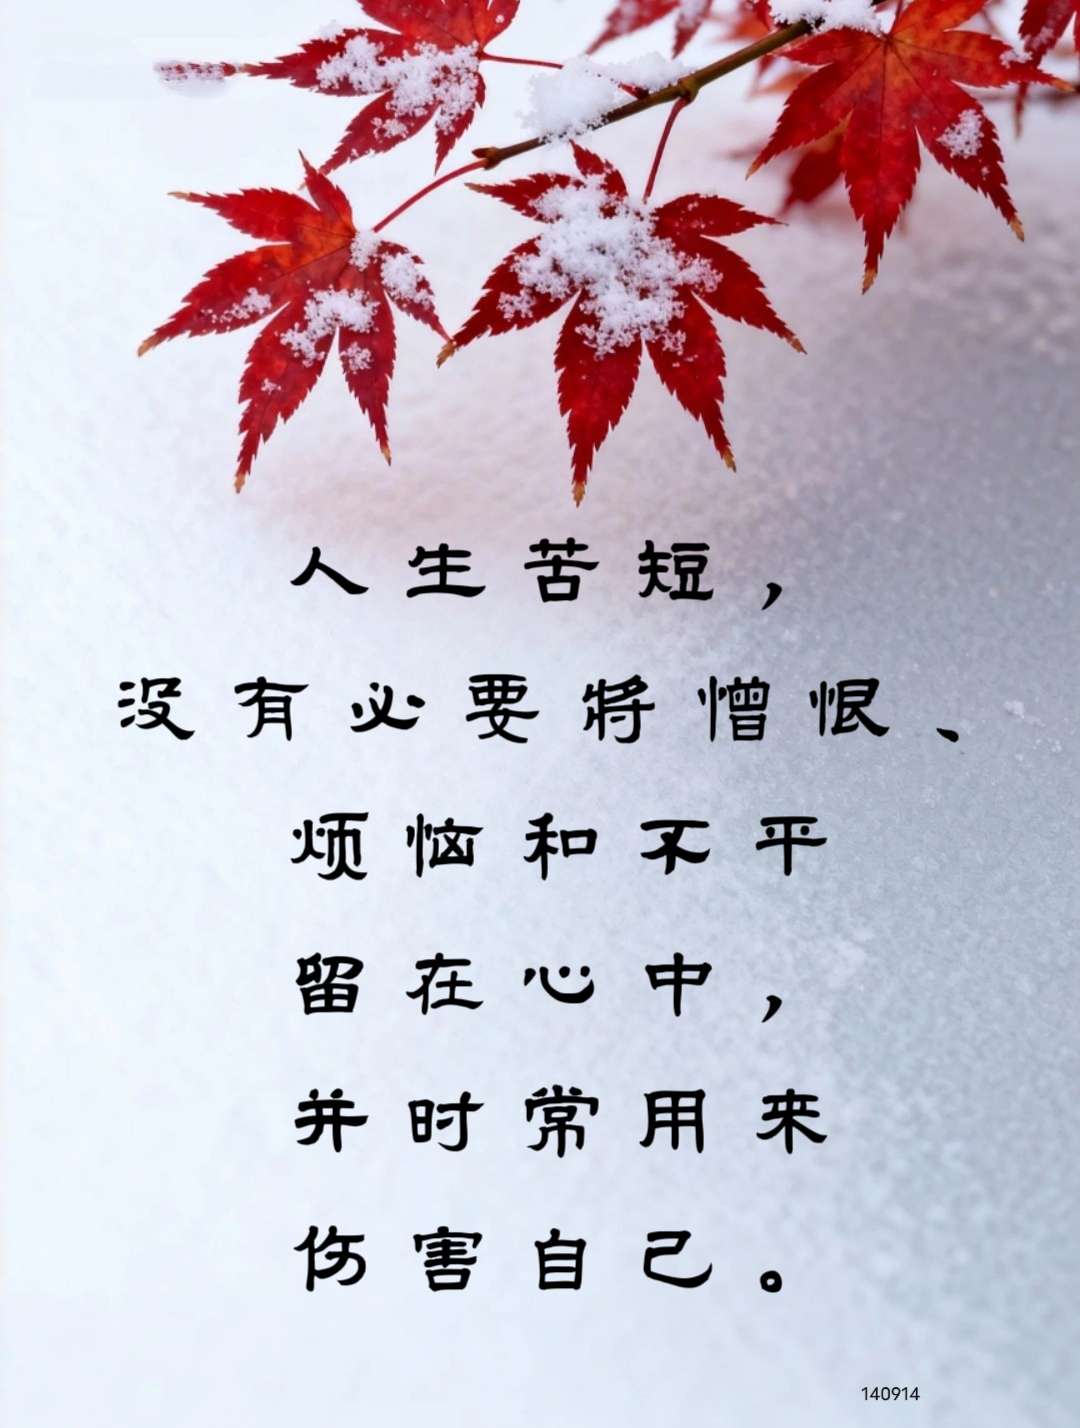 人生苦短，
没有必要将憎恨、
烦恼和不平
留在心中，
并时常用来
伤害自己。
140914